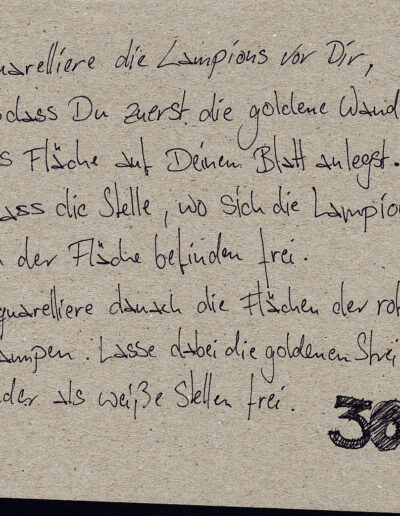 quarelliere die Lampions vor Dir,
odass Du zuerst die goldene Wand
s Fläche auf Deinem Blatt anlegst.
ass die Stelle, wo sich die Lampio
n der Fläche befinden frei.
quarelliere danach die Flächen der rot
ampen. Lasse dabei die goldenen Strei
der als weiße Stellen frei.
36